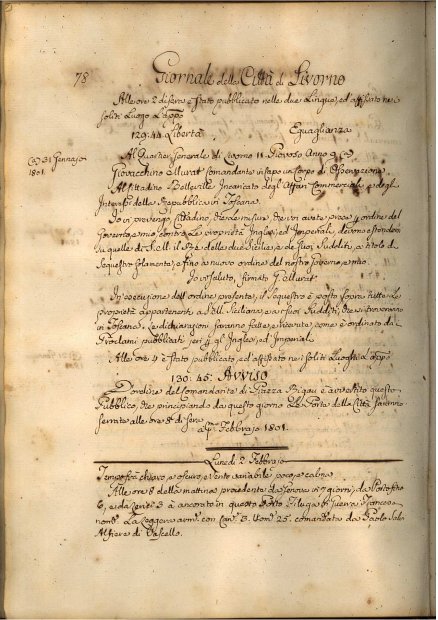 78
Giornale della Città di Livorno
Alle ore 2 di sera è stato pubblicato nelle due Lingue, ed affissato nei
soliti Luoghi l'app.o
129:44 Libertà Eguaglianza
Al Quartier Generale di Livorno 11 Piovoso Anno 9
(a) 31 Gennajo
1801.
Giovacchino Murat Comandante in capo un Corpo di Osservazione
Al Cittadino Belleville Incaricato degl'Affari Commerciali, e degl'
Interessi della Repubblica in Toscana.
Io vi prevengo, Cittadino, che le misure, che voi avete prese d'ordine del
Governo, e mio contro le proprietà Inglesi, ed Imperiali, devono estendersi
su quelle di S. M. il Re delle due Sicilie, e de suoi Sudditi, a titolo di
Sequestro solamente, e fino a nuovo ordine del nostro Governo, e mio.
Io vi saluto, firmato Murat
In esecuzione dell'ordine presente, il Sequestro è posto sopra tutte le
proprietà appartenenti a S. M. Siciliana, e a suoi Sudditi, che si troveranno
in Toscana, le dichiarazioni saranno fatte, e ricevute, come è ordinato da
Proclami pubblicati jeri gl'Inglesi, ed Imperiali.
Alle ore è stato pubblicato, ed affissato nei soliti Luoghi l'app.o
130:45. Avviso
D'ordine del Comandante di Piazza è avvertito questo
Pubblico, che principiando da questo giorno le Porte della Città saranno
serrate alle ore 8 di sera.
Febbrajo 1801.
Lunedì 2 Febbrajo
Tempo frà chiaro, e oscuro, e vento variabile poco, e calma
Alle ore 8 della mattina procedente da Genova in 7 giorni, da Portofino
6, e da Lerici 3 è ancorato in questo Porto Filuga di Guerra Francese
nom.a La Leggera arm.a con Can.i 3. Uom.i 25. comandata da Paolo Sala
Alfiere di Vascello.